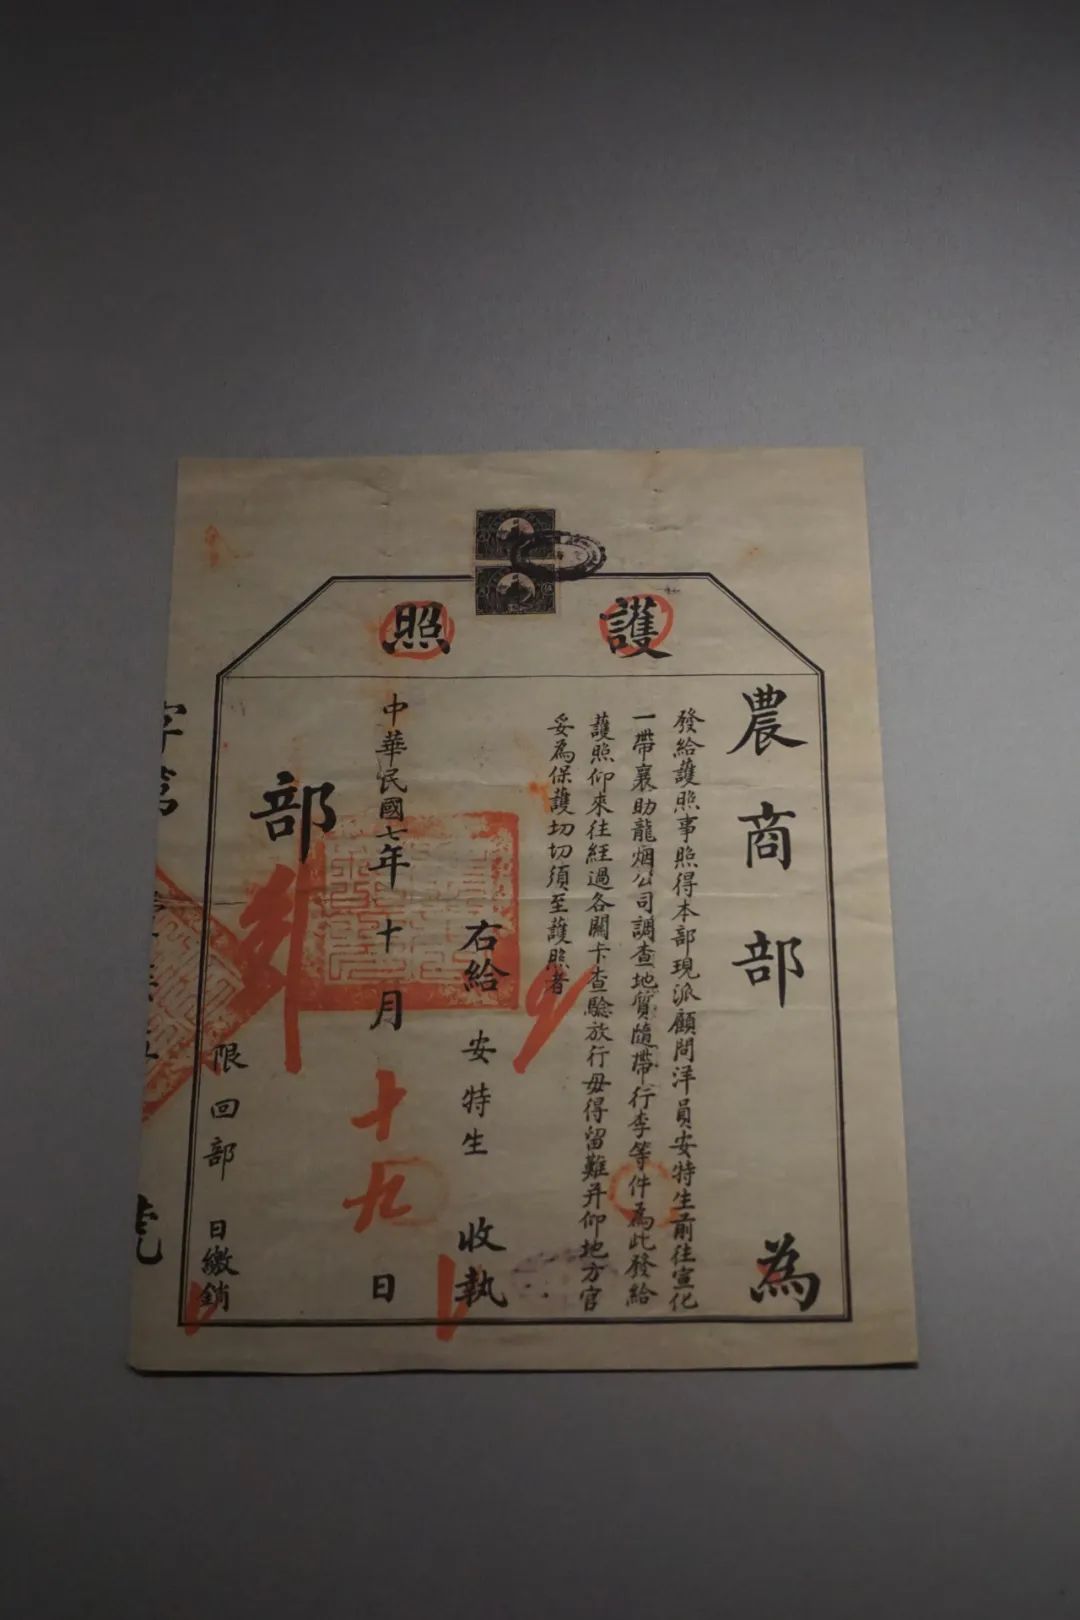 護照
農商部 為
發給護照事照得本部現派顧問洋員安特生前往宣化
一帶襄助龍烟公司調查地質隨帶行李等件為此發給
護照仰來往經過各關卡查驗放行毋得留難并仰地方官
妥為保護切切須至護照者
右給 安特生 收執
中華民國七年十月十九日
部
限回部 日繳銷
字第 號